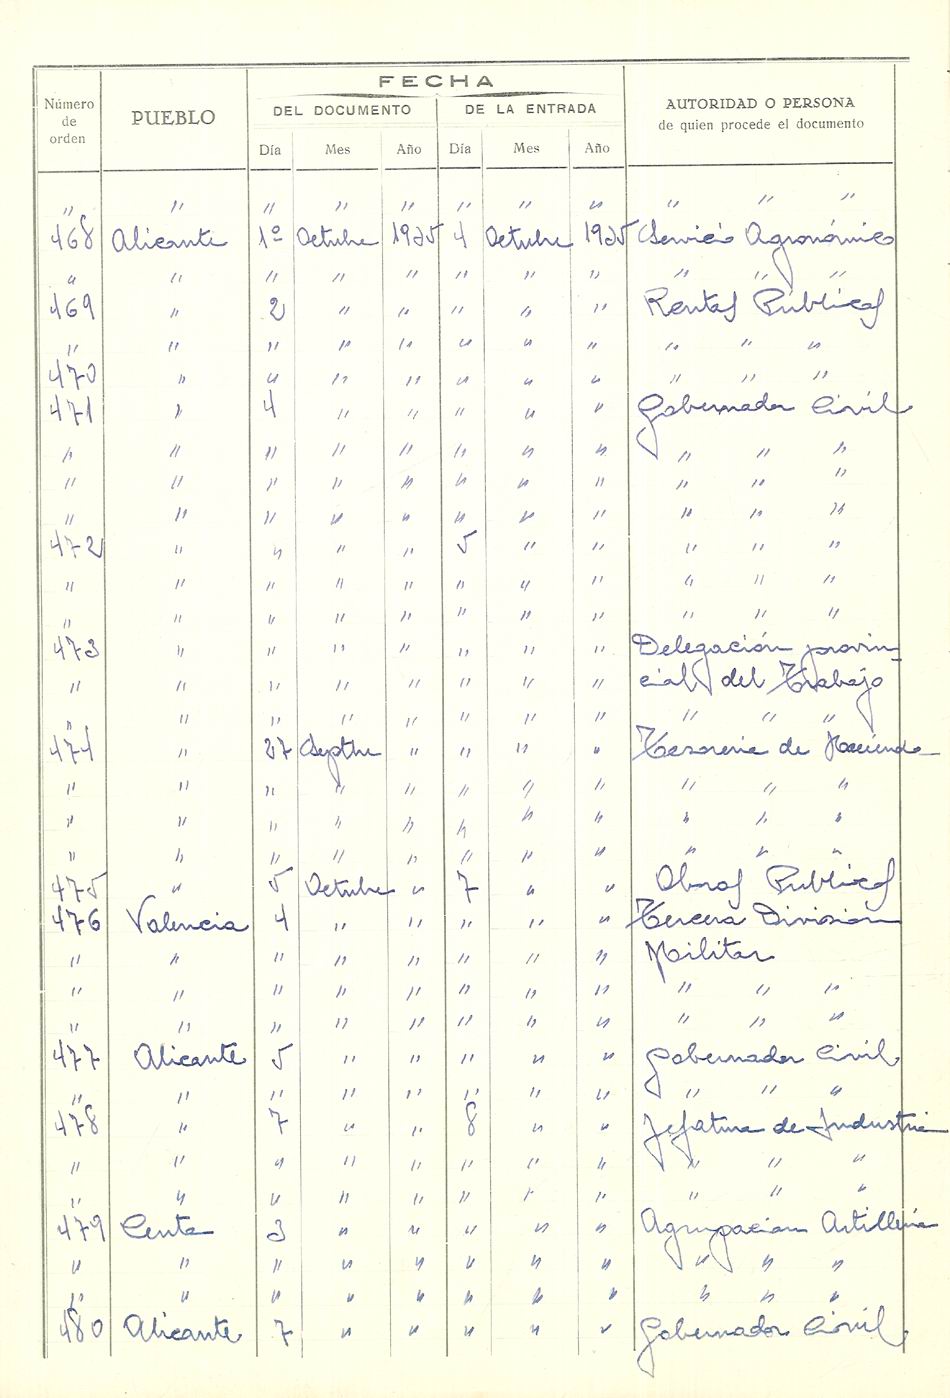 FECHA
Número de orden PUEBLO DEL DOCUMENTO DE LA ENTRADA AUTORIDAD O PERSONA
de quien procede el documento
Día Mes Año Día Mes Año
" " " " " " " " " " "
468 Alicante 1º Octubre 1935 4 Octubre 1935 Servicio Agronómico
" " " " " " " " " " "
469 " 2 " " " " " Rentas Publicas
" " " " " " " " " " "
470 " " " " " " " " " "
471 " 4 " " " " " Gobernador Civil
" " " " " " " " " " "
" " " " " " " " " " "
" " " " " " " " " " "
472 " " " " 5 " " " " "
" " " " " " " " " " "
" " " " " " " " " " "
473 " " " " " " " Delegación provin-
" " " " " " " " cial del Trabajo
" " " " " " " " " " "
474 " 27 Sepbre " " " " Tesoreria de Hacienda
" " " " " " " " " " "
" " " " " " " " " " "
" " " " " " " " " " "
475 " 5 Octubre " 7 " " Obras Publicas
476 Valencia 4 " " " " " Tercera Division
" " " " " " " " Militar
" " " " " " " " " " "
" " " " " " " " " " "
477 Alicante 5 " " " " " Gobernador Civil
" " " " " " " " " " "
478 " 7 " " 8 " " Jefatura de Industria
" " " " " " " " " " "
" " " " " " " " " " "
479 Ceuta 3 " " " " " Agrupacion Artilleria
" " " " " " " " " " "
" " " " " " " " " " "
480 Alicante 7 " " " " " Gobernador Civil